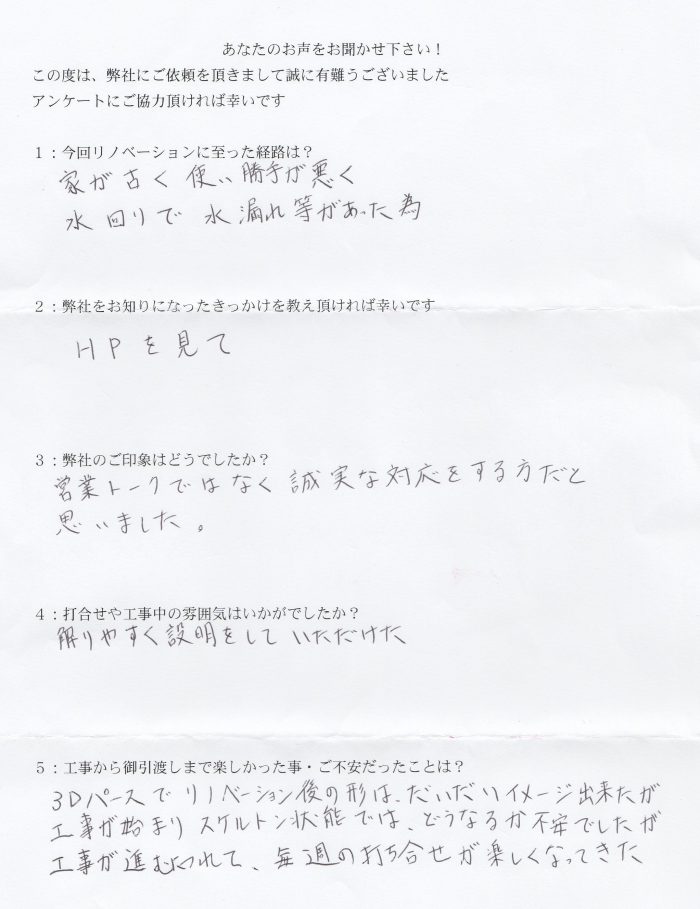 あなたのお声をお聞かせ下さい！
この度は、弊社にご依頼を頂きまして誠に有難うございました
アンケートにご協力頂ければ幸いです
１：今回リノベーションに至った経路は？
家が古く使い勝手が悪く
水回りで水漏れ等があった為
２：弊社をお知りになったきっかけを教え頂ければ幸いです
HPを見て
３：弊社のご印象はどうでしたか？
営業トークではなく誠実な対応をする方だと
思いました。
４：打合せや工事中の雰囲気はいかがでしたか？
解りやすく説明をしていただけた
５：工事から御引渡しまで楽しかった事・ご不安だったことは？
3Dパースでリノベーション後の形は、だいだいイメージ出来たが
工事が始まりスケルトン状態では、どうなるか不安でしたが
工事が進むつれて、毎週の打ち合せが楽しくなってきた